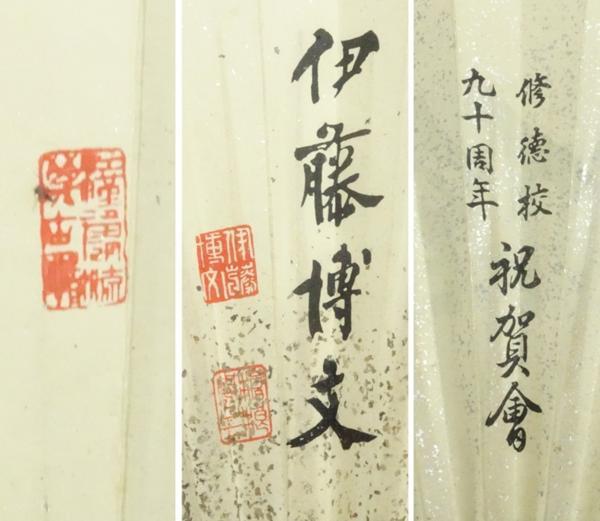 伊藤博文
伊藤
博文
修德校
九十周年
祝賀會